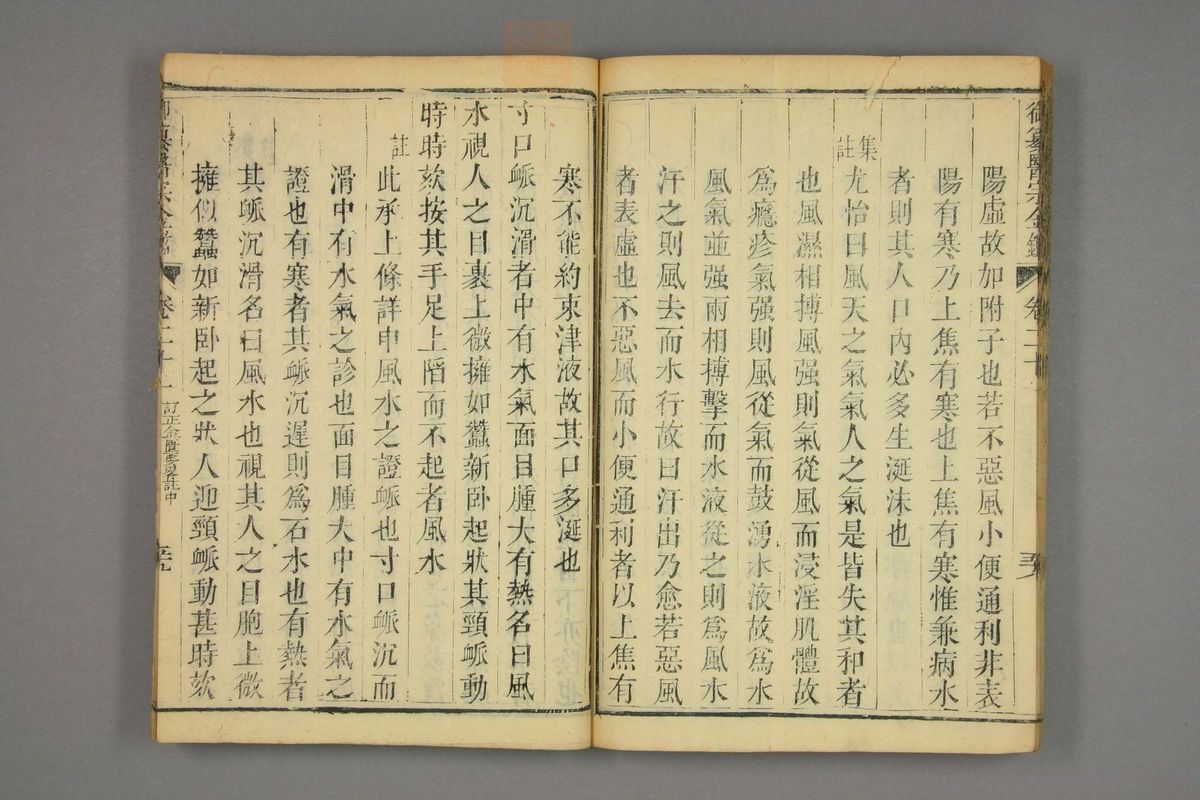 御纂醫宗金鑑 卷二十
陽虛故如附子也若不惡風小便通利非表
陽有寒乃上焦有寒也上焦有寒惟兼病水
者則其人口內必多生涎沫也
集註尤怡曰風天之氣氣人之氣是皆失其和者
也風濕相搏風强則氣從風而浸淫肌體故
爲癮疹氣强則風從氣而鼓湧水液故爲水
風氣並强兩相搏擊而水液從之則爲風水
汗之則風去而水行故曰汗出乃愈若惡風
者表虛也不惡風而小便通利者以上焦有
寒不能約束津液故其口多涎也
寸口脈沉滑者中有水氣面目腫大有熱名曰風
水視人之目裹上微擁如蠶新卧起狀其頸脈動
時時欬按其手足上䧟而不起者風水
註此承上條詳申風水之證脈也寸口脈沉而
滑中有水氣之診也面目腫大中有水氣之
證也有寒者其脈沉遲則爲石水也有熱者
其脈沉滑名曰風水也視其人之目胞上微
擁似蠶如新卧起之狀人迎頸脈動甚時欬
卷二十 訂正金匱要略註中